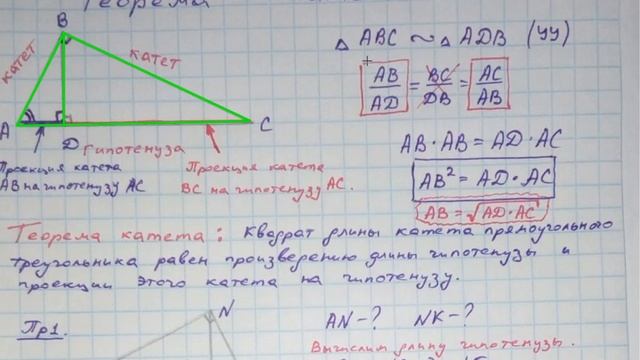 Теорема
B
катет
катет
A
D
гипотенуза
C
Проекция катета
AB на гипотенузу AC
Проекция катета
BC на гипотенузу AC.
△ ABC ~ △ ADB (УУ)
AB/AD = BC/DB = AC/AB
AB · AB = AD · AC
AB² = AD · AC
AB = √AD · AC
Теорема катета: Квадрат длины катета прямоугольного
треугольника равен произведению длины гипотенузы и
проекции этого катета на гипотенузу.
Пр1.
N
AN - ? NK - ?
Вычислим длину гипотенузы.